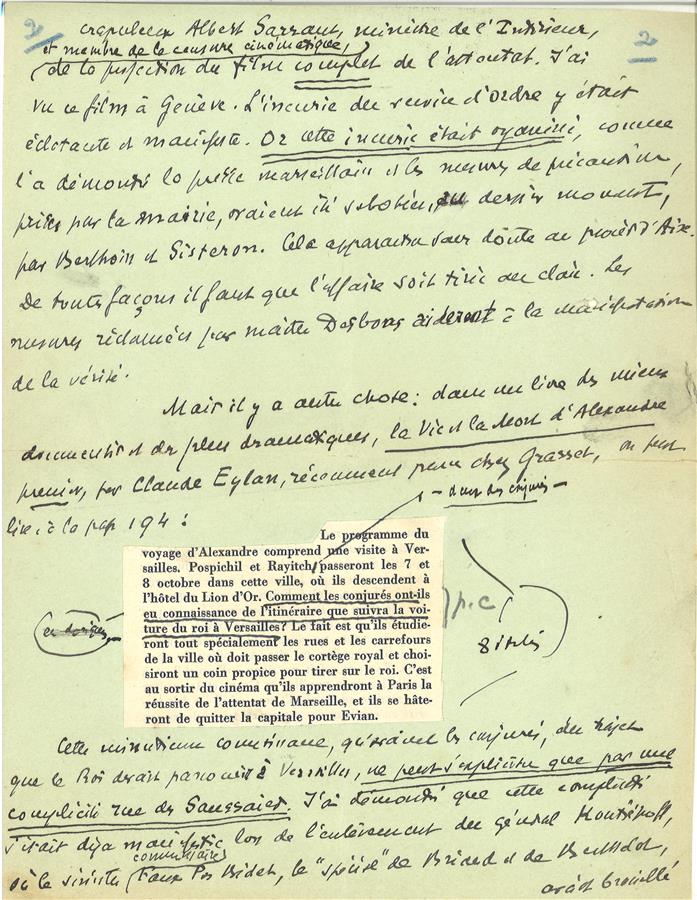 2 2
crapuleux Albert Sarraut, ministre de l'Intérieur,
et membre de la censure cinématique,
de la projection du film complet de l'attentat. J'ai
vu ce film à Genève. L'incurie du service d'ordre y était
éclatante et manifeste. Or cette incurie était organisée, comme
l'a démontré la presse marseillaise et les mesures de précaution,
prises par la mairie, avaient été sabotées, au dernier moment,
par Berthoin et Sisteron. Cela apparaîtra sans doute au procès d'Aix.
De toutes façons il faut que l'affaire soit tirée au clair. Les
mesures réclamées par maître Desbons aideront à la manifestation
de la vérité.
Mais il y a autre chose : dans un livre des mieux
documentés et des plus dramatiques, la Vie et la Mort d'Alexandre
premier, par Claude Eylan, récemment paru chez Grasset, on peut
lire à la page 194 :
— deux des conjurés —
Le programme du
voyage d'Alexandre comprend une visite à Ver-
sailles. Pospichil et Rayitch passeront les 7 et
8 octobre dans cette ville, où ils descendent à
l'hôtel du Lion d'Or. Comment les conjurés ont-ils
eu connaissance de l'itinéraire que suivra la voi-
ture du roi à Versailles? Le fait est qu'ils étudie-
ront tout spécialement les rues et les carrefours
de la ville où doit passer le cortège royal et choi-
siront un coin propice pour tirer sur le roi. C'est
au sortir du cinéma qu'ils apprendront à Paris la
réussite de l'attentat de Marseille, et ils se hâte-
ront de quitter la capitale pour Evian.
p.c
8
Cette minutieuse connaissance, qu'avaient les conjurés, du trajet
que le Roi devait parcourir à Versailles, ne peut s'expliquer que par une
complicité rue des Saussaies. J'ai démontré que cette complicité
s'était déjà manifestée lors de l'enlèvement du général Koutiépoff,
commissaire
où le sinistre Faux Pas Bidet, le "spécialiste" de Briand et de Berthelot,
avait brouillé